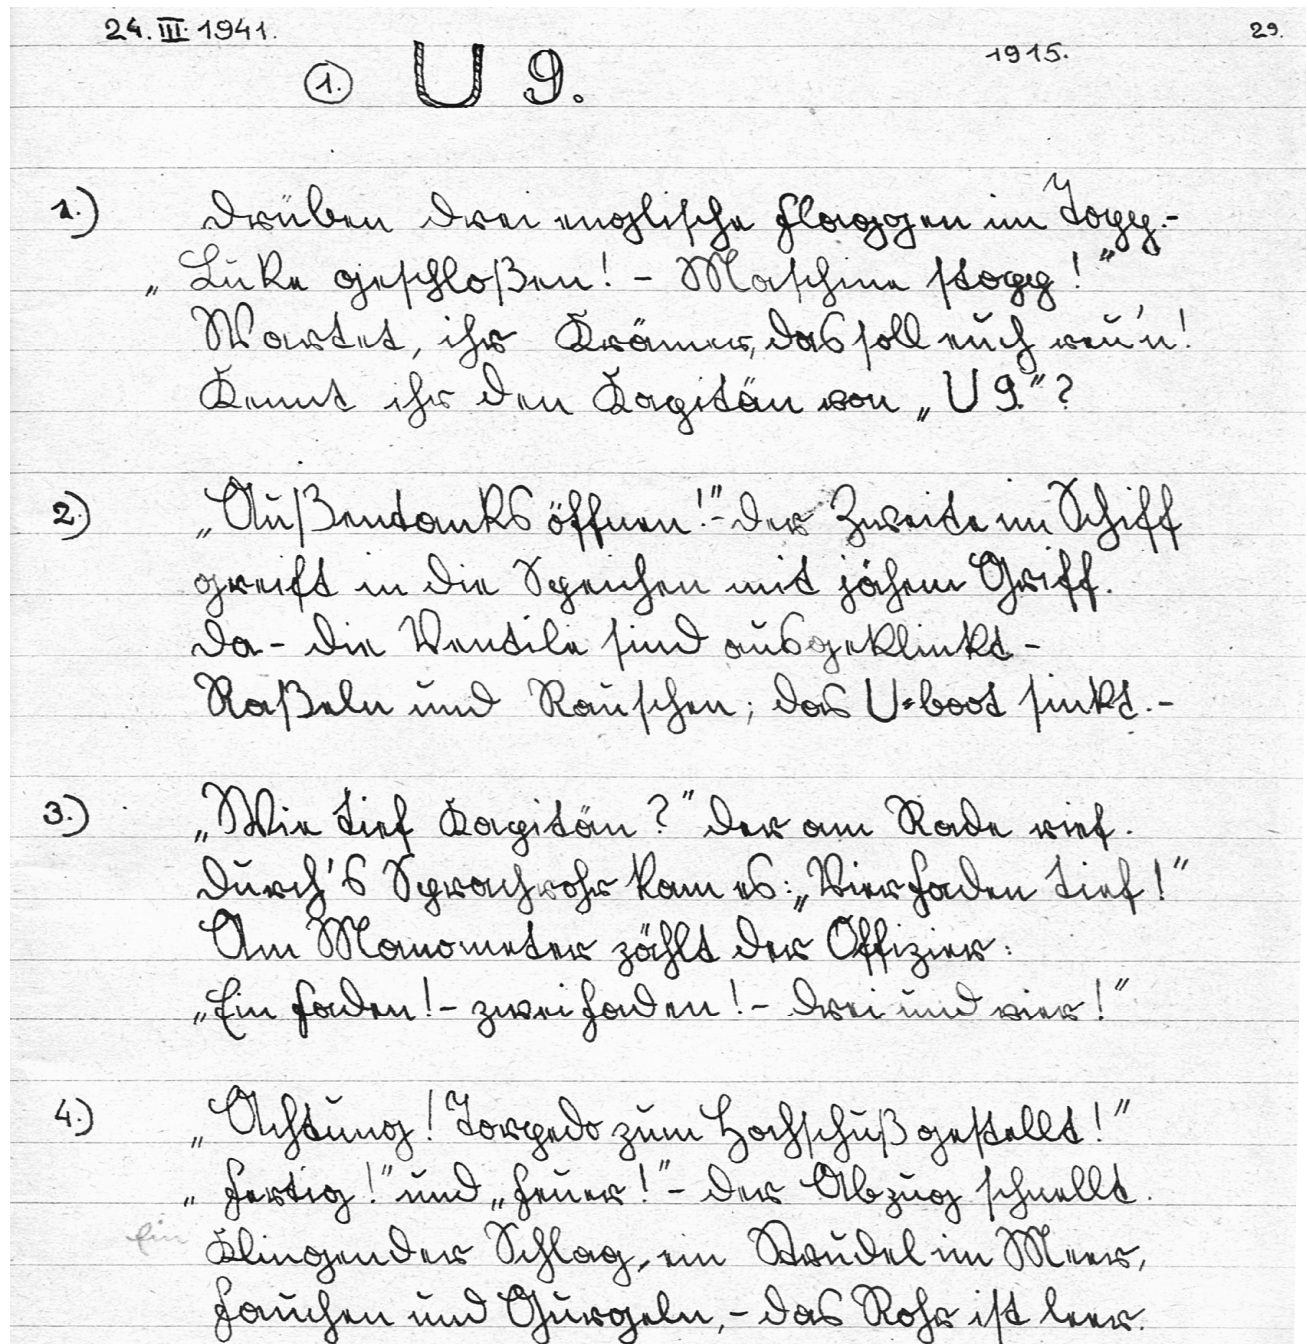 24. III. 1941.
29.
1915.
1. U 9.
1.) Drüben drei englische Flaggen im Topp.-
„Luke geschloßen! - Maschine stopp!"
Wartet, ihr Krämer, das soll euch reu'n!
Kennt ihr den Kapitän von „U 9."?
2.) „Außentanks öffnen!" - Der Zweite im Schiff
greift in die Speichen mit jähem Griff.
Da - die Ventile sind ausgeklinkt -
Raßeln und Rauschen; das U=boot sinkt.-
3.) „Wie tief Kapitän?" der am Rade rief.
Durch's Sprachrohr kam es: „Vier Faden tief!"
Am Manometer zählt der Offizier:
„Ein Faden! - zwei Faden! - drei und vier!"
4.) „Achtung! Torpedo zum Hochschuß gestellt!"
„Fertig!" und „Feuer!" - der Abzug schnellt.
Ein Klingender Schlag, ein Strudel im Meer,
Fauchen und Gurgeln, - das Rohr ist leer.